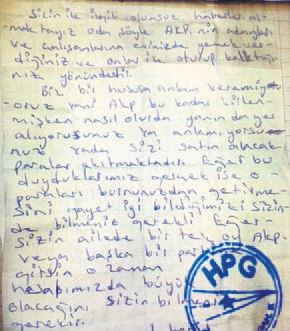 Sizin ile ilgili olumsuz haberler al-
maktayız oda şöyle AKP.nin adayları
ve çalışanlarına evinizde yemek ver-
diğiniz ve onlar ile oturup kalktığı-
nız yönündedir.
Biz bir hususa anlam veremiyor-
oruz yani Akp bu kadar kirlen-
mişken nasıl olurda yanında yer
alıyorsunuz ya anlamıyorsu-
nuz yada sizi satın alacak
paralar akıtmaktadır. Eğer bu
duyduklarımız gerçek ise o
paraları burnunuzdan getirme-
sini gayet iyi bildiğimizi sizin-
de bilmeniz gerekli. Eğer
sizin ailede bir tek oy AKP
veya başka bir par
gitsin o zaman
hesabımızda büyü
olacağını sizin bilme
gerekir.
HPG